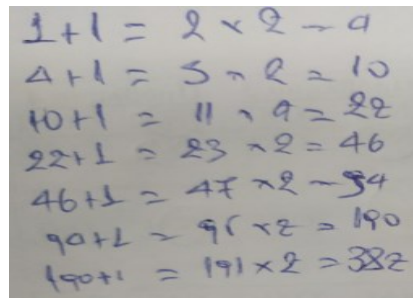 1+1 = 2 × 2 = 4
4+1 = 5 × 2 = 10
10+1 = 11 × 2 = 22
22+1 = 23 × 2 = 46
46+1 = 47 × 2 = 94
94+1 = 95 × 2 = 190
190+1 = 191 × 2 = 382